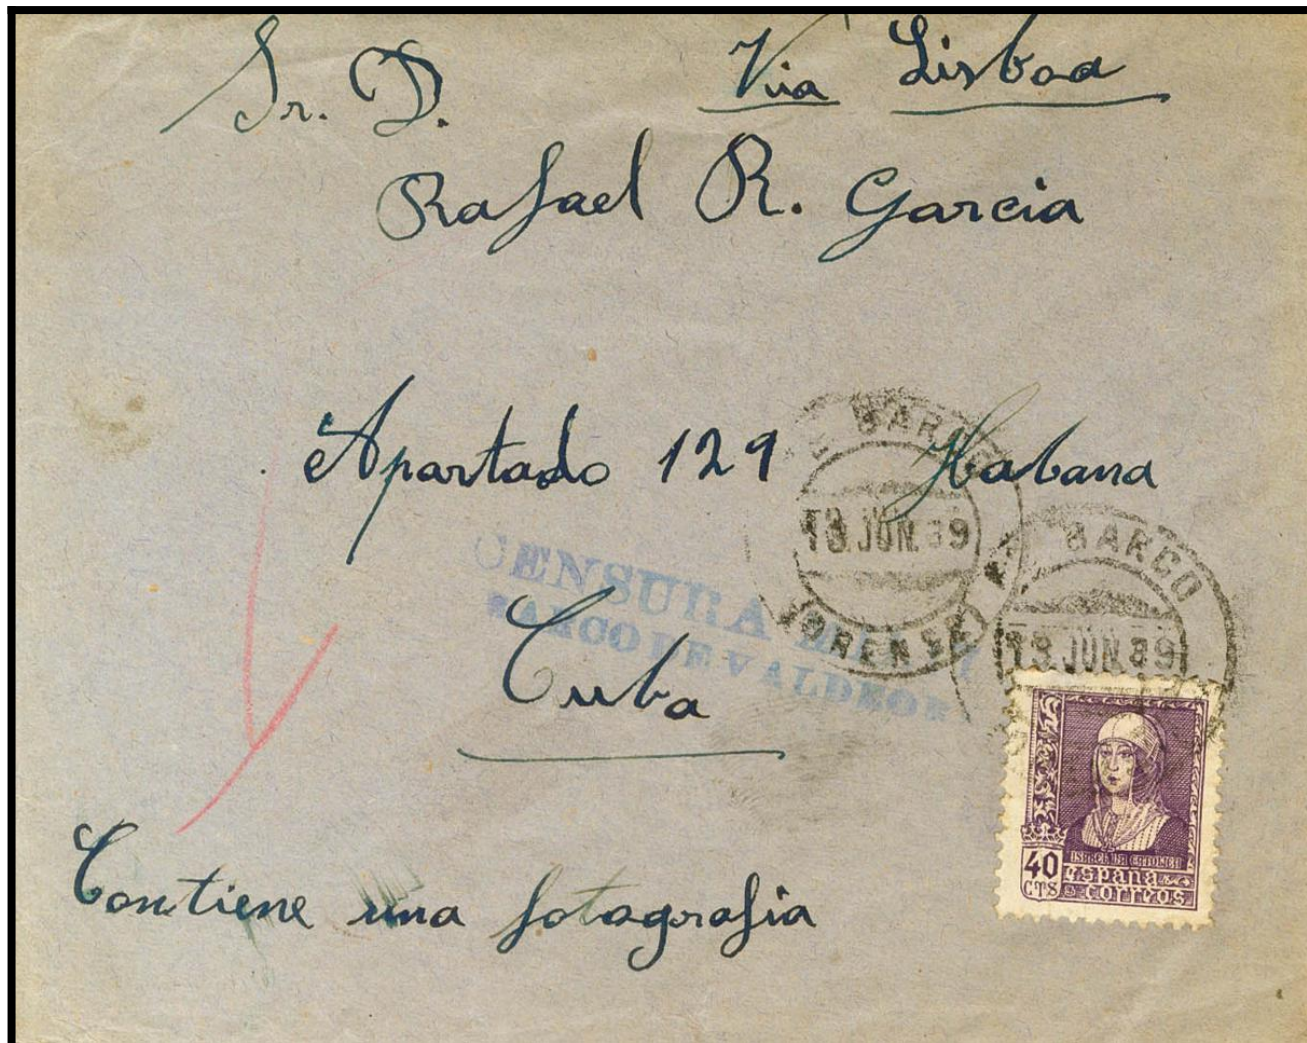 Sr. D. Via Lisboa
Rafael R. Garcia
Apartado 129 Habana
Cuba
Contiene una fotografia
BARCO
13 JUN. 39
ORENSE
BARCO
13 JUN. 39
CENSURA
BARCO DE VALDEOR
40
CTS
ISABEL LA CATOLICA
ESPAÑA
CORREOS